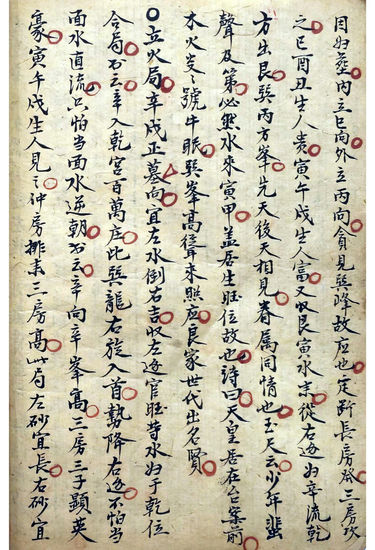 因妇葬内立巳向外立丙向貪見巽峰故应也定断長房發三房次
之巳酉丑生人贵寅午戌生人富又収艮寅水来従右边妇辛流乾
方出艮巽丙方峯先天後天相見眷属同情也玉天云少年蜚
聲及第必然水來寅甲盖居生旺位故也詩曰天皇居在台案前
木火券號牛眠巽峯高聳来照应良家世代出名賢
〇立火局辛戌正墓向宜左水倒右吉収左边官旺等水妇于乾位
合局書云辛入乾宫百萬庄此巽龍右旋入首勢降右边不怕当
面水直流只怕当面水逆朝書云辛向辛峯高三房三子顕英
豪寅午戌生人見之仲房排来三房高此局左砂宜長右砂宜